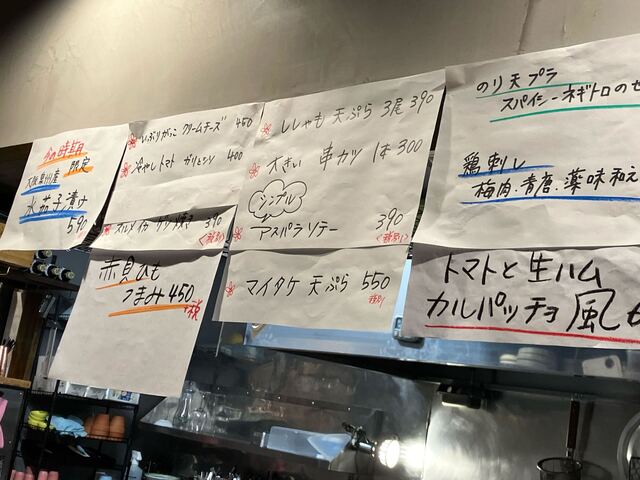 今の時期
限定
大阪泉州産
水茄子漬け
590
いぶりがっこ クリームチーズ 450
冷やしトマト ガリとシソ 400
スルメイカ 390
(税別)
赤貝ひも
つまみ 450
+税
ししゃも 天ぷら 3尾 390
大きい 串カツ 1本 300
シンプル
アスパラソテー 390
(税別)
マイタケ 天ぷら 550
税別
のり天プラ
スパイシーネギトロのせ
鶏刺し
梅肉・青唐・薬味和え
トマトと生ハム
カルパッチョ風